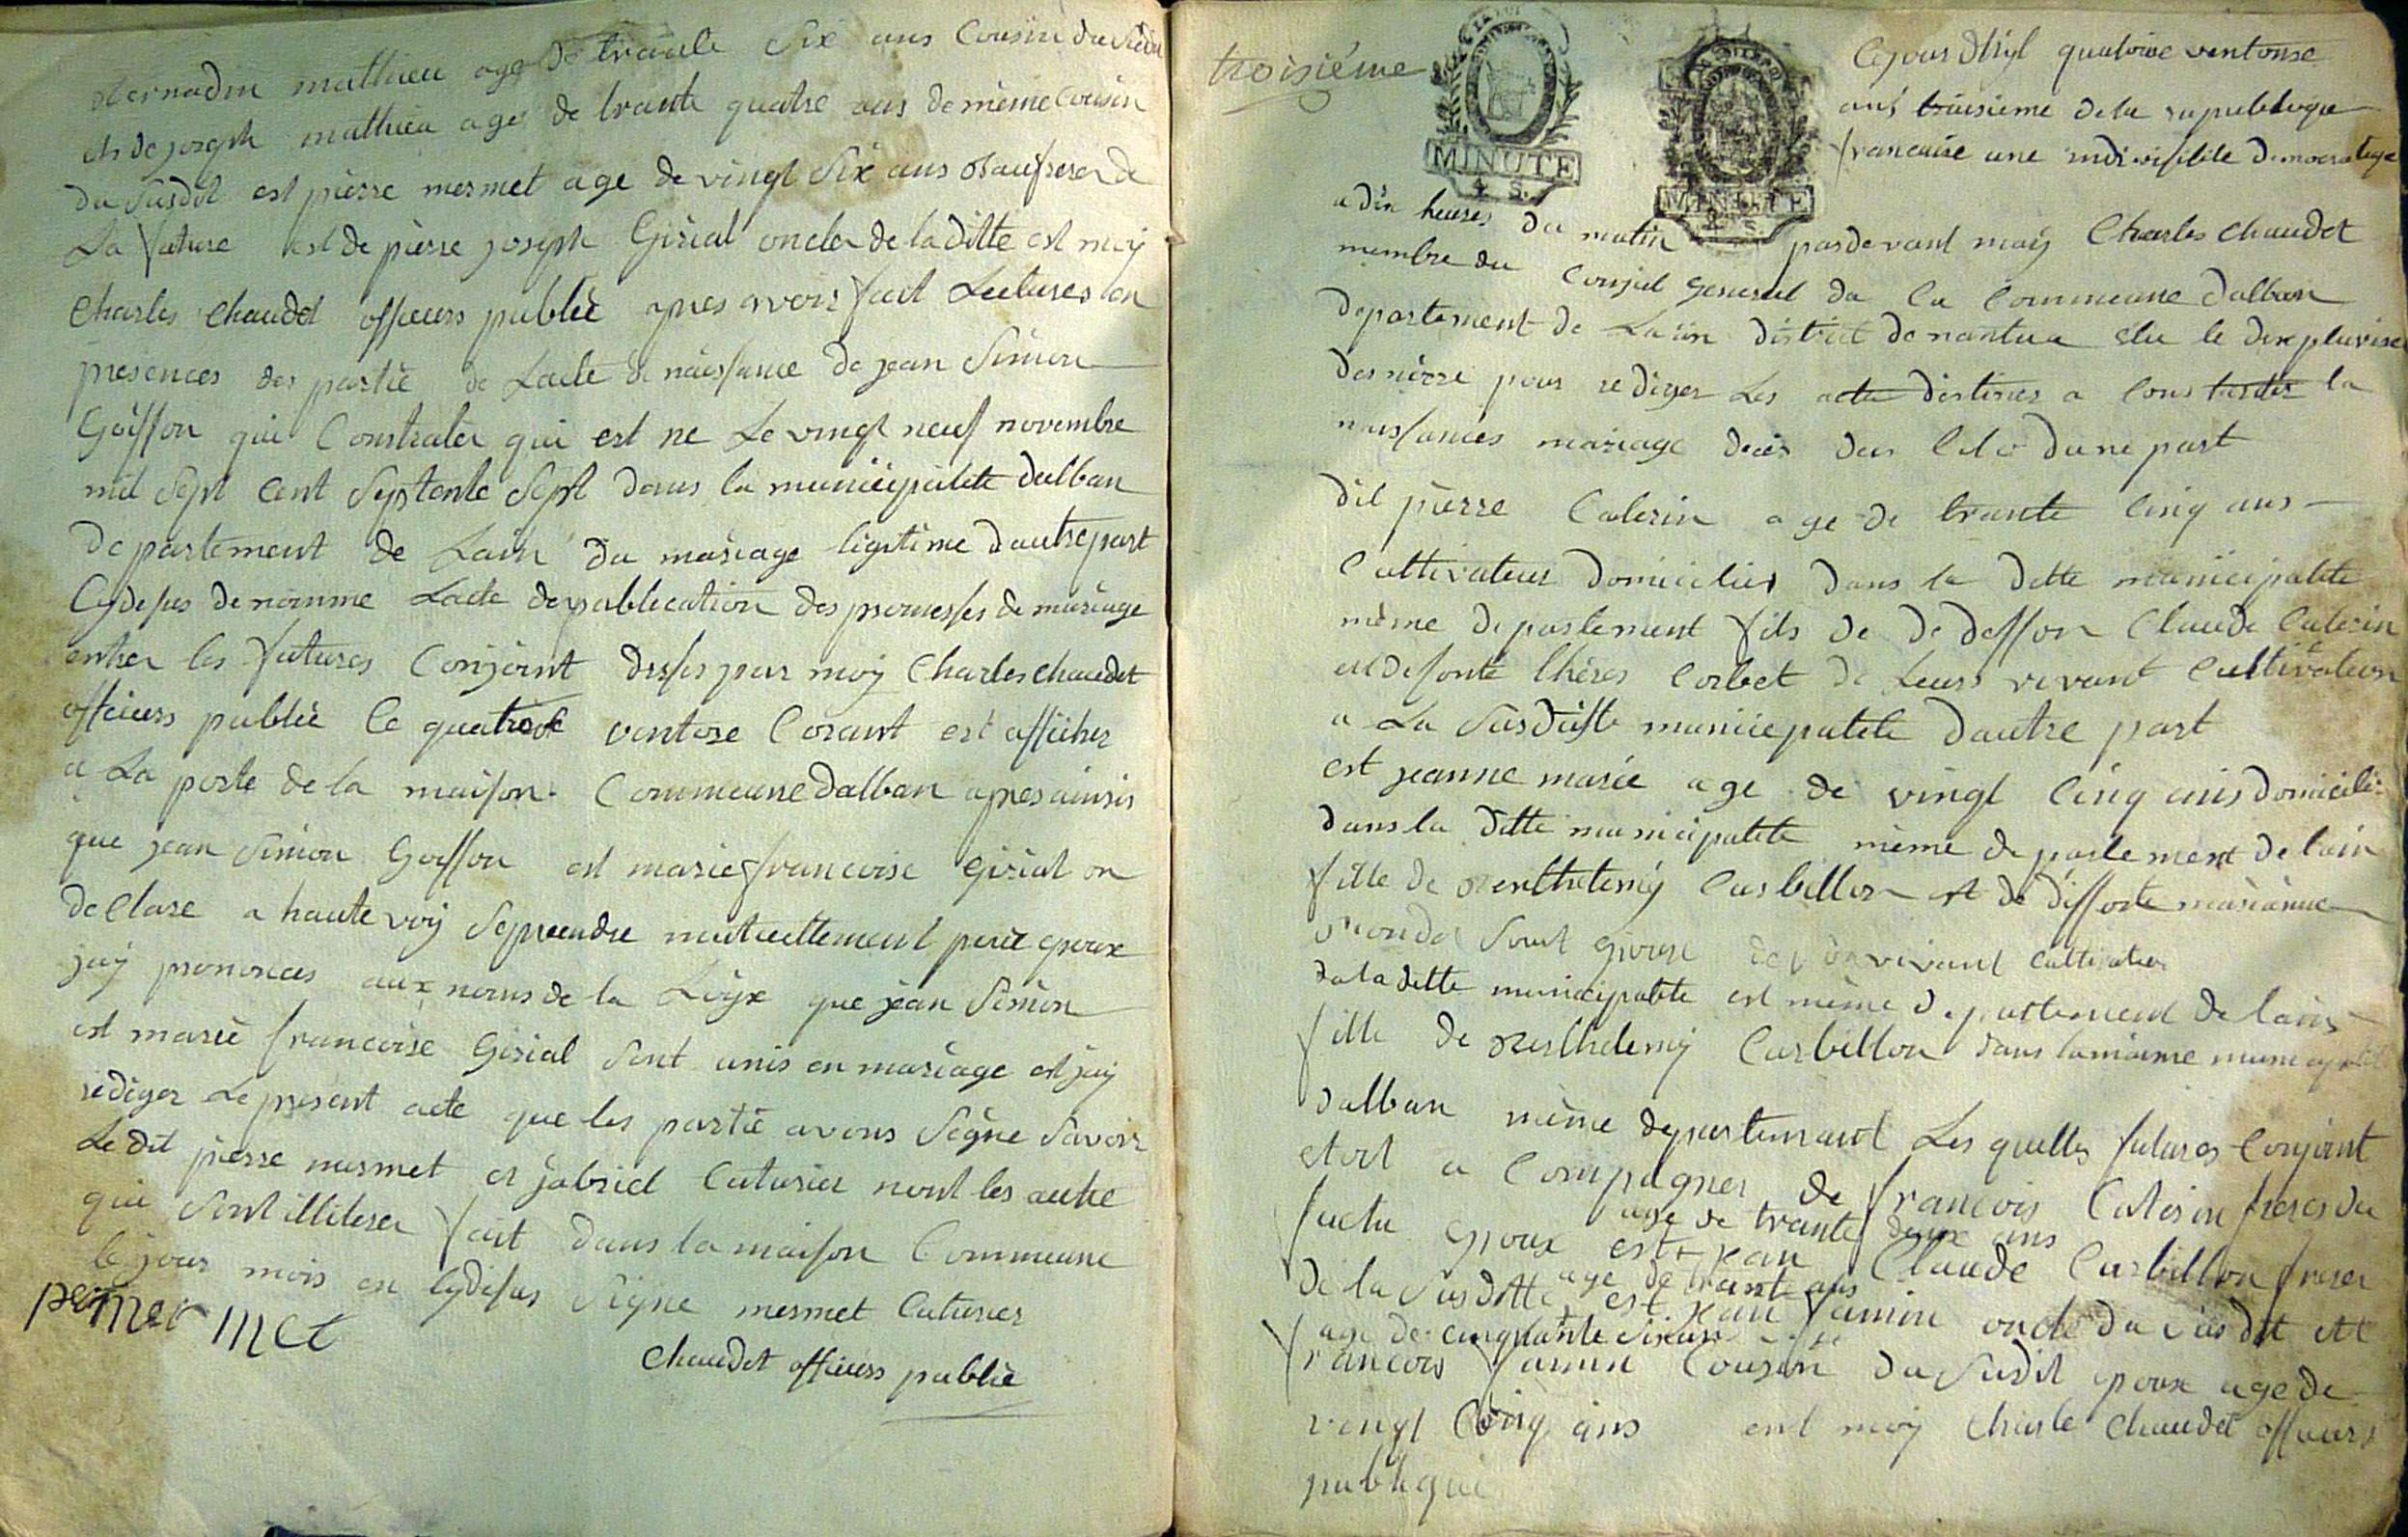 Bernadin mathieu age de trante Six ans Cousin du
et de joseph mathieu age de trante quatre ans de mème Cousin
du Susdit est pierre mermet age de vingt Six ans de
La future est de pièrre joseph Girial oncler de la ditte est moy
Charles Chaudet officiers publiè apres avoir fait Lectures en
presences des partiè de Lacte de naissance de jean Simon
Goiffon qui Constater qui est ne Le vingt neuf novembre
mil Sept Cent Septente Sept dans la municipalite dalban
departement de Lain du mariage ligitime dautre part
Cydesus denomme Lacte de publication des promesses de mariage
entrer les futures Conjoint par moy Charles chaudet
officiers publiè le quatre ventose Corant est afficher
a La porte de la maison Commeune dalban apres ainsis
que jean Simon Goiffon est marie francoise Girial on
declare a haute voiy Seprendre mutuellement pour epoux
jay prononces aux noms de la Loiyx que jean Simon
est marie francoise Girial Sont unis en mariage est jay
rediger Le present acte que les partiè avons Signe Savoir
Le dit pierre mermet et gabriel Caturier nont les autre
qui Sont illiterer fait dans la maison Commeune
le jour mois en Cydesus Signe mermet Caturier
per mer met
Chaudet officiers publiè
troisiéme
MINUTE
4 S.
MINUTE
Cejour dhyl quatorze ventonse
ans troisieme de la republique
francaise une indivisible democratiqe
a dix heures du matin pardevant moiy Charles Chaudet
membre du Conseil General da la Commeune dalban
departement de Lain district de nantua elu le dix pluvise
dernière pour rediger Les acte destines a Constater la
naissances mariage decès des dune part
dit pierre Caterin age de trante Cinq ans
Cultivateur domicilier dans la ditte municipalite
mème departement fils de de deffon Claude Caterin
et defonte Corbet de Leurs vivant Cultivateur
a La Susditte municipalite dautre part
est jeanne marie age de vingt Cinq ans domicili
dans la ditte municipalite mème departement de lain
fille de Berthelemy Carbillon et de deffonte marianne
Sont epouse de vivant Cultivateur
da la ditte municipalite est mème departement de lain
fille de Berthelemy Carbillon dans la mème
dalban mème departement Les quelles futures Conjoint
etoit a Compagner de francois Caterin freres du
age de trante deux ans
futu epoux est jean Claude Carbillon frerer
age de trante ans
de la Susditte est jean Jamin oncle du Susdit et
age de Cinquante Six ans
francois Jamin Cousin du Sudit epoux age de
vingt Cinq ans est moiy Charle Chaudet officiers
publique